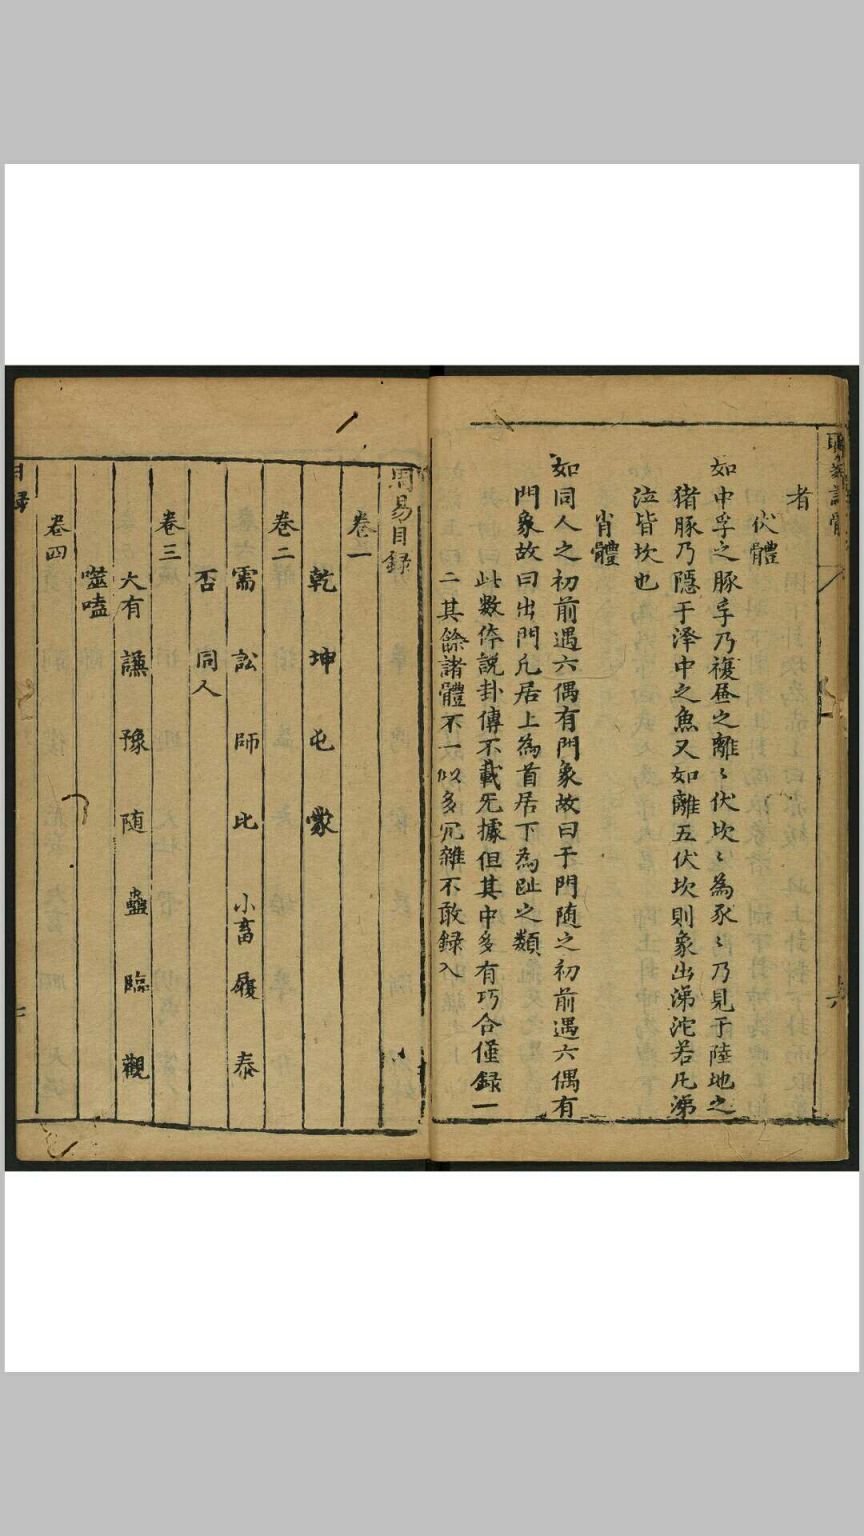 者
伏體
如中孚之豚孚乃複昼之離〻伏坎〻為豕〻乃見于陸地之
猪豚乃隱于泽中之魚又如離五伏坎則象出涕沱若凢涕
泣皆坎也
肖體
如同人之初前遇六偶有門象故曰于門随之初前遇六偶有
門象故曰出門凢居上為首居下為趾之類
此数体説卦傳不載旡據但其中多有巧合僅録一
二其餘諸體不一似多冗雜不敢録入
周易目録
卷一
乾 坤 屯 蒙
卷二
需 訟 師 比 小畜 履 泰
否 同人
卷三
大有 謙 豫 随 蠱 臨 觀
噬嗑
卷四
目録